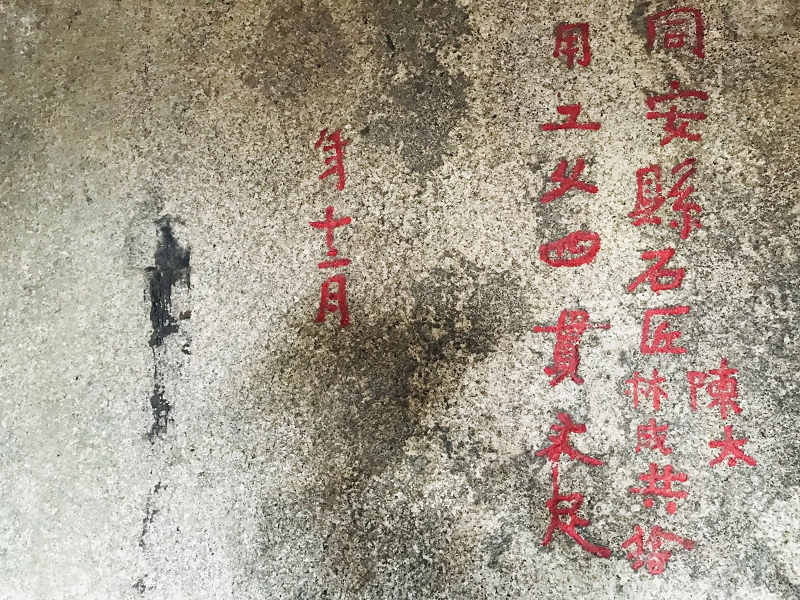 陳太
同安縣石匠林成共捨
用工四貫足
年十二月